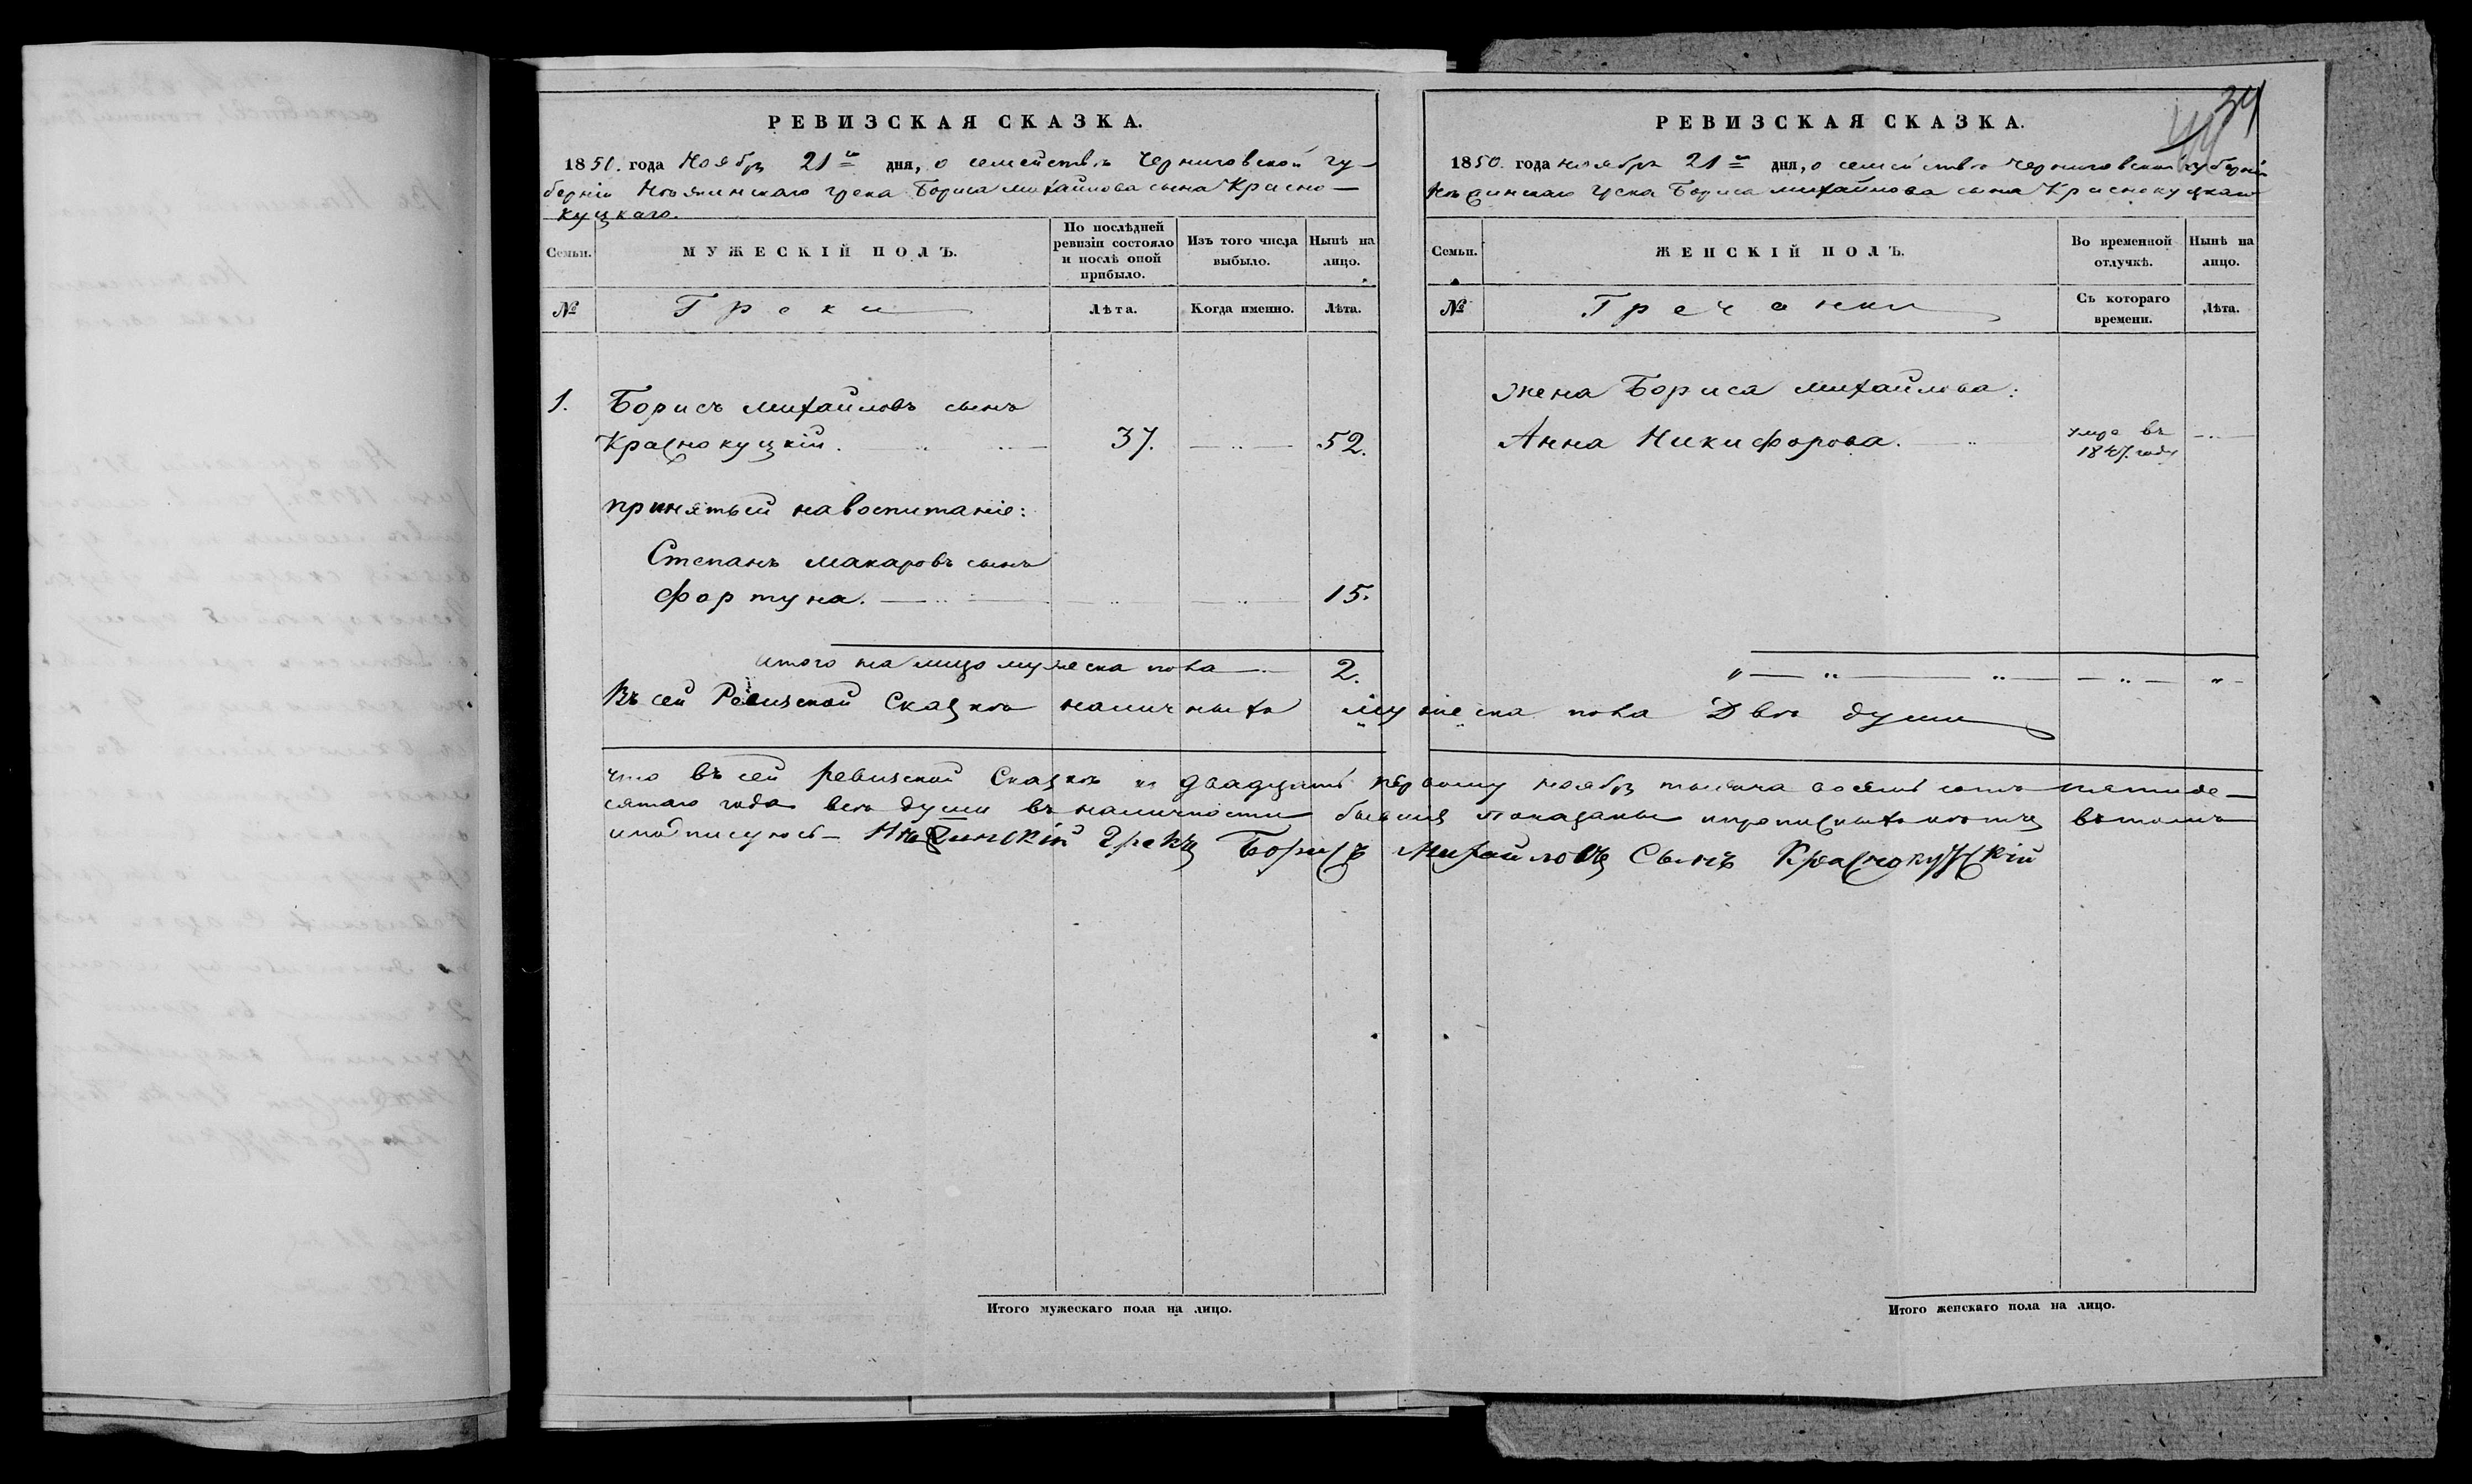 34
44
РЕВИЗСКАЯ СКАЗКА.
1850. года Ноябр 21го дня, о семействѣ Черниговской гу-
берніи Нѣжинскаго грека Бориса Михайлова сына Красно-
куцкаго.
Семьи.
МУЖЕСКІЙ ПОЛЪ.
По послѣдней
ревизіи состояло
и послѣ оной
прибыло.
Изъ того числа
выбыло.
Нынѣ на
лицо.
№
Греки
Лѣта.
Когда именно.
Лѣта.
1. Борисъ Михайловъ сынъ
Краснокуцкій. 37. 52.
принятый на воспитаніе:
Степанъ Макаровъ сынъ
Фортуна. 15.
итого на лицо мужеска пола 2.
РЕВИЗСКАЯ СКАЗКА.
1850. года ноября 21го дня, о семействѣ Черниговской губерніи
Нѣжинскаго грека Бориса Михайлова сына Краснокуцкаго
Семьи.
ЖЕНСКІЙ ПОЛЪ.
Во временной
отлучкѣ.
Нынѣ на
лицо.
№
Гречанки
Съ котораго
времени.
Лѣта.
Жена Бориса Михайлова:
Анна Никифорова. умре въ
1847. году
Въ сей Ревизской Сказкѣ наличныхъ мужеска пола Двѣ души
что въ сей ревизской Сказкѣ къ двадцать первому ноябр тысяча восемь сотъ пятиде-
сятаго года всѣ души въ наличности бывшія показаны и прописныхъ нѣтъ въ томъ
и подписуюсь Нѣжинскій Грекъ Борисъ Михайловъ Сынъ Краснокуцкій
Итого мужескаго пола на лицо.
Итого женскаго пола на лицо.